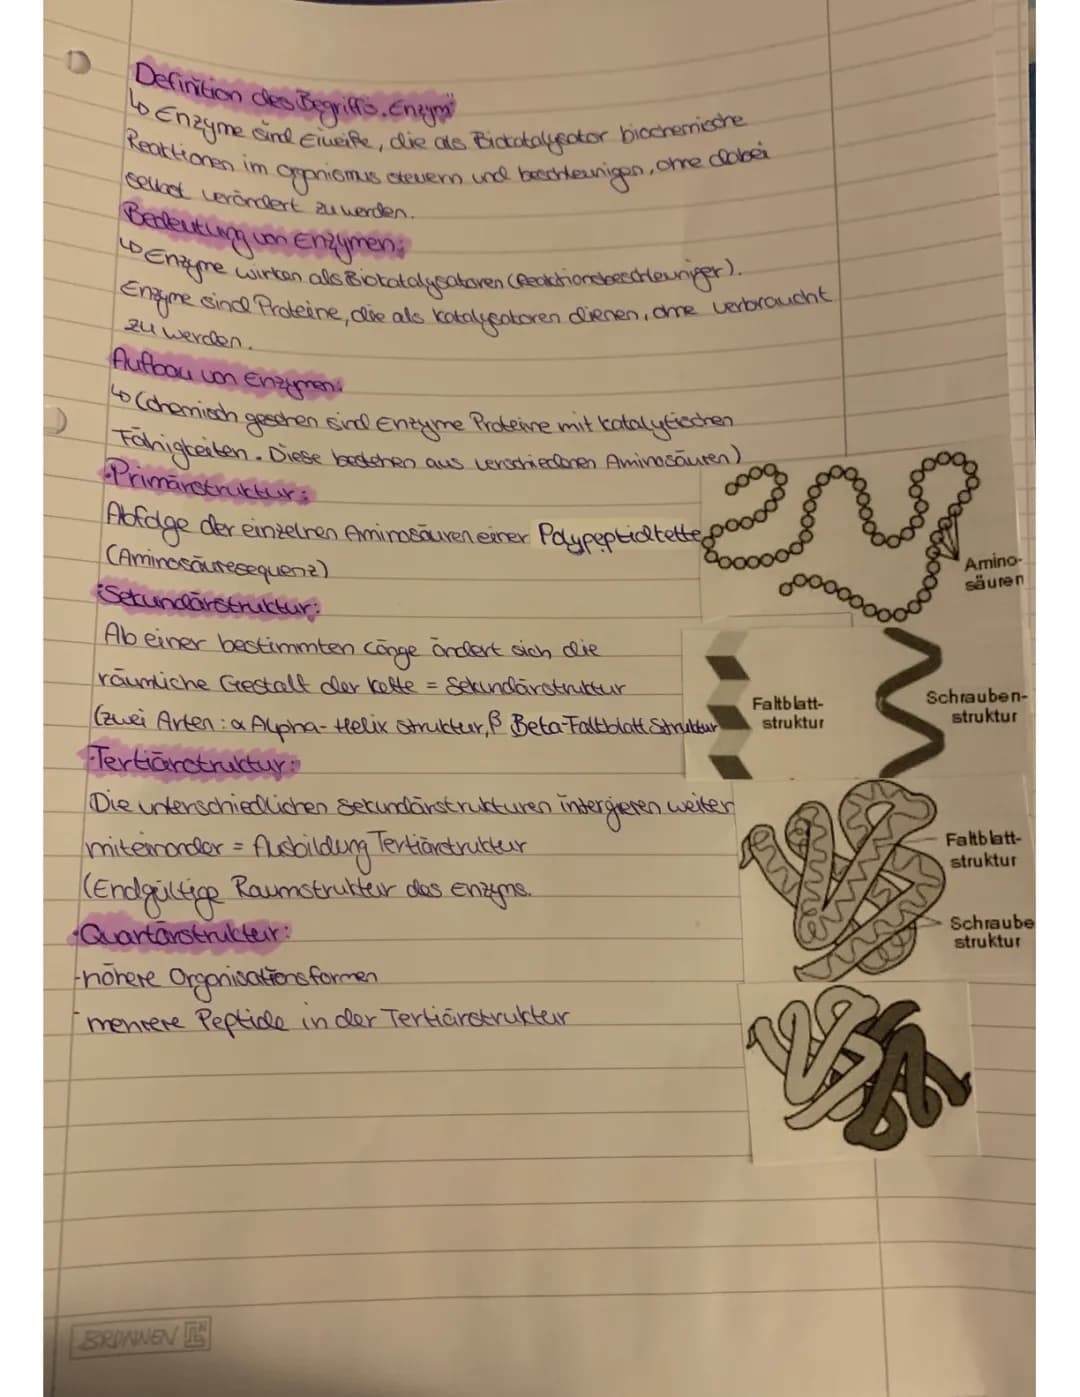 Definition des Begriffs „Enzym"
↳ Enzyme sind Eiweiße, die als Biokatalysator biochemische
Reaktionen im Organismus steuern und beschleunigen, ohne dabei
selbst verändert zu werden.
Bedeutung von Enzymen:
↳ Enzyme wirken als Biokatalysatoren (Reaktionsbeschleuniger).
Enzyme sind Proteine, die als Katalysatoren dienen, ohne verbraucht
zu werden.
Aufbau von Enzymen:
↳ (Chemisch gesehen sind Enzyme Proteine mit katalytischen
Fähigkeiten. Diese bestehen aus verschiedenen Aminosäuren)
·Primärstruktur:
Abfolge der einzelnen Aminosäuren einer Polypeptidkette
(Aminosäuresequenz)
Amino-
säuren
·Sekundärstruktur:
Ab einer bestimmten Länge ändert sich die
räumliche Gestalt der Kette = Sekundärstruktur
(zwei Arten: α Alpha-Helix Struktur, β Beta-Faltblatt Struktur
Faltblatt-
struktur
Schrauben-
struktur
·Tertiärstruktur:
Die unterschiedlichen Sekundärstrukturen intergieren weiter
miteinander = Ausbildung Tertiärstruktur
(Endgültige Raumstruktur des Enzyms.
Faltblatt-
struktur
Schraube
struktur
·Quartärstruktur:
-höhere Organisationsformen
-mehrere Peptide in der Tertiärstruktur
BRUNNEN